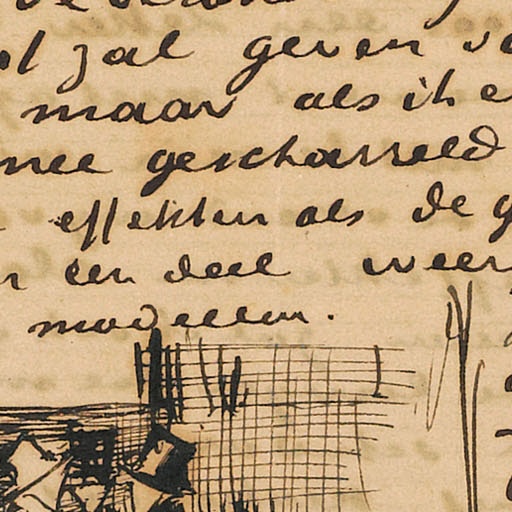 zal geven
maar als ik
mee gescharreld
effekten als de
een deel weer
modellen.